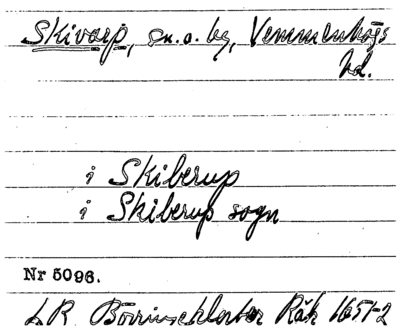 Skivarp, sn. o. by, Vemmenhögs
hd.
i Skiberup
i Skiberup sogn
Nr 5096.
LR Börringekloster Räk 1651-2